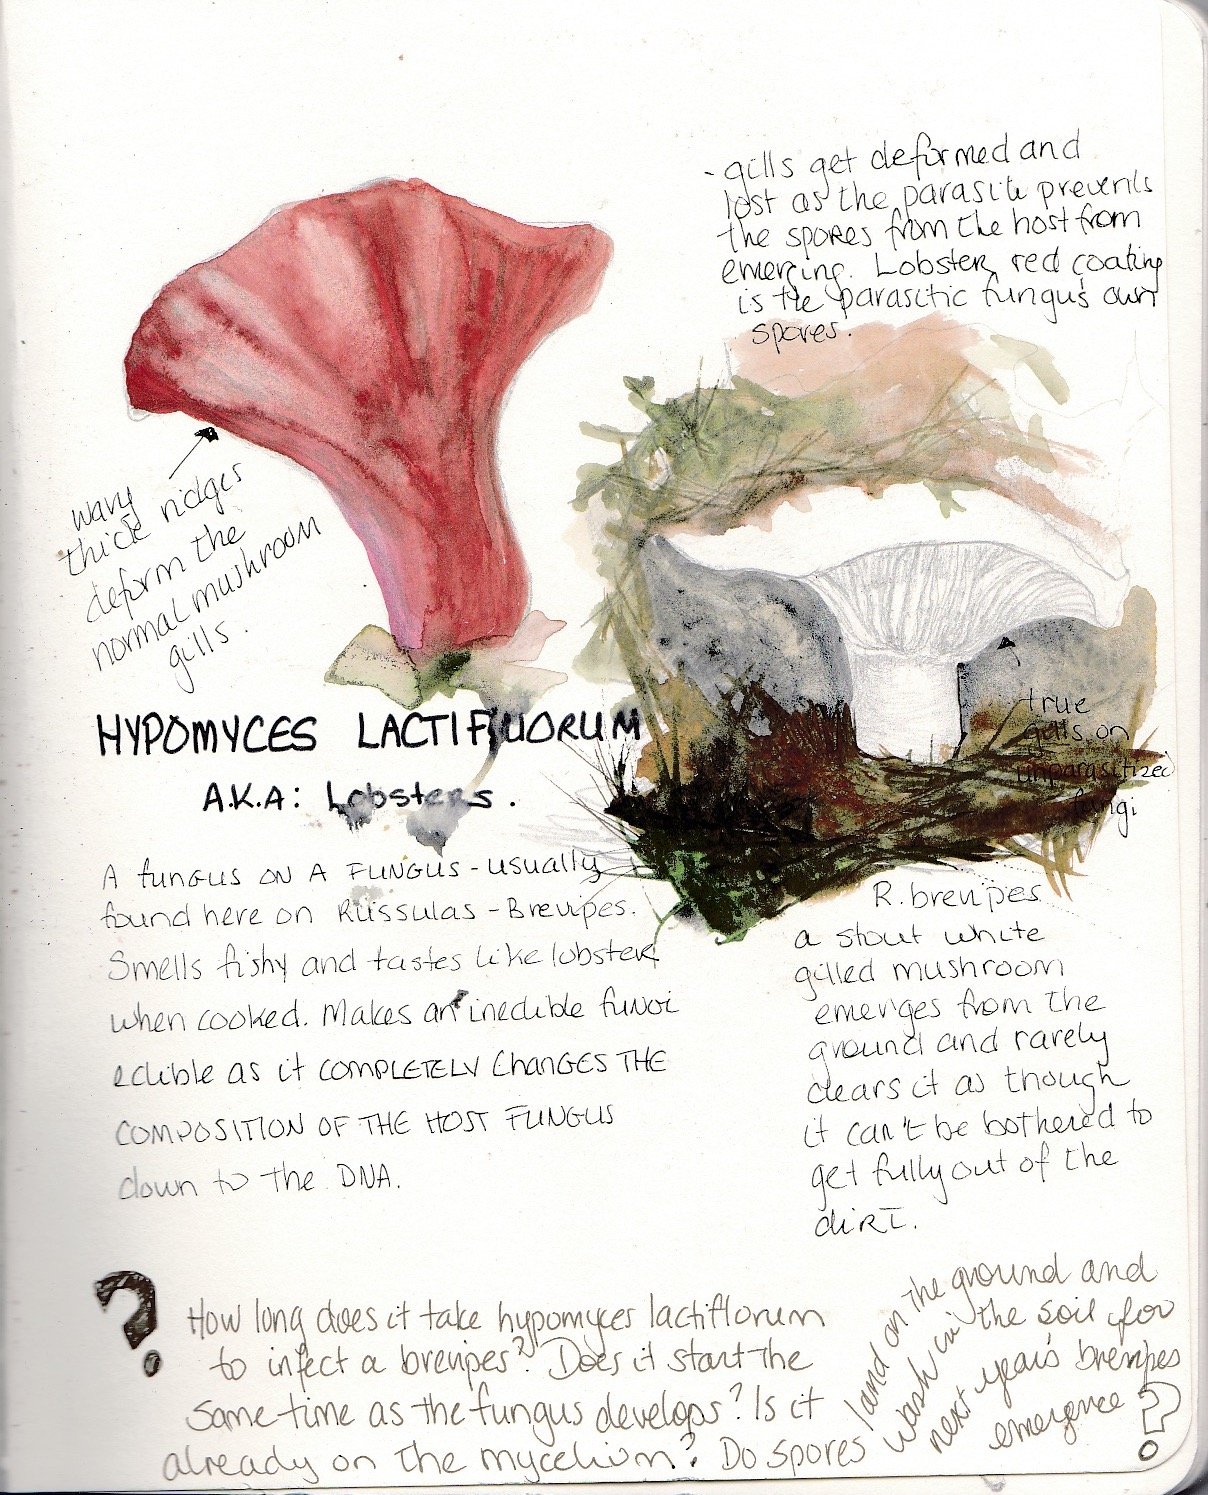 - gills get deformed and
lost as the parasite prevents
the spores from the host from
emerging. Lobster red coating
is the parasitic fungus own
spores.
wavy
thick ridges
deform the
normal mushroom
gills.
true
gills on
unparasitized
fungi
HYPOMYCES LACTIFLUORUM
A.K.A: Lobsters.
A fungus on A FUNGUS - usually
found here on Russulas - Brevipes.
Smells fishy and tastes like lobster
when cooked. Makes an inedible fungi
edible as it COMPLETELY CHANGES THE
COMPOSITION OF THE HOST FUNGUS
down to the DNA.
R. brevipes
a stout white
gilled mushroom
emerges from the
ground and rarely
clears it as though
it can't be bothered to
get fully out of the
dirt.
? How long does it take hypomyces lactiflorum
to infect a brevipes? Does it start the
same time as the fungus develops? Is it
already on the mycelium? Do spores
land on the ground and
wash in the soil for
next year's brevipes
emergence?